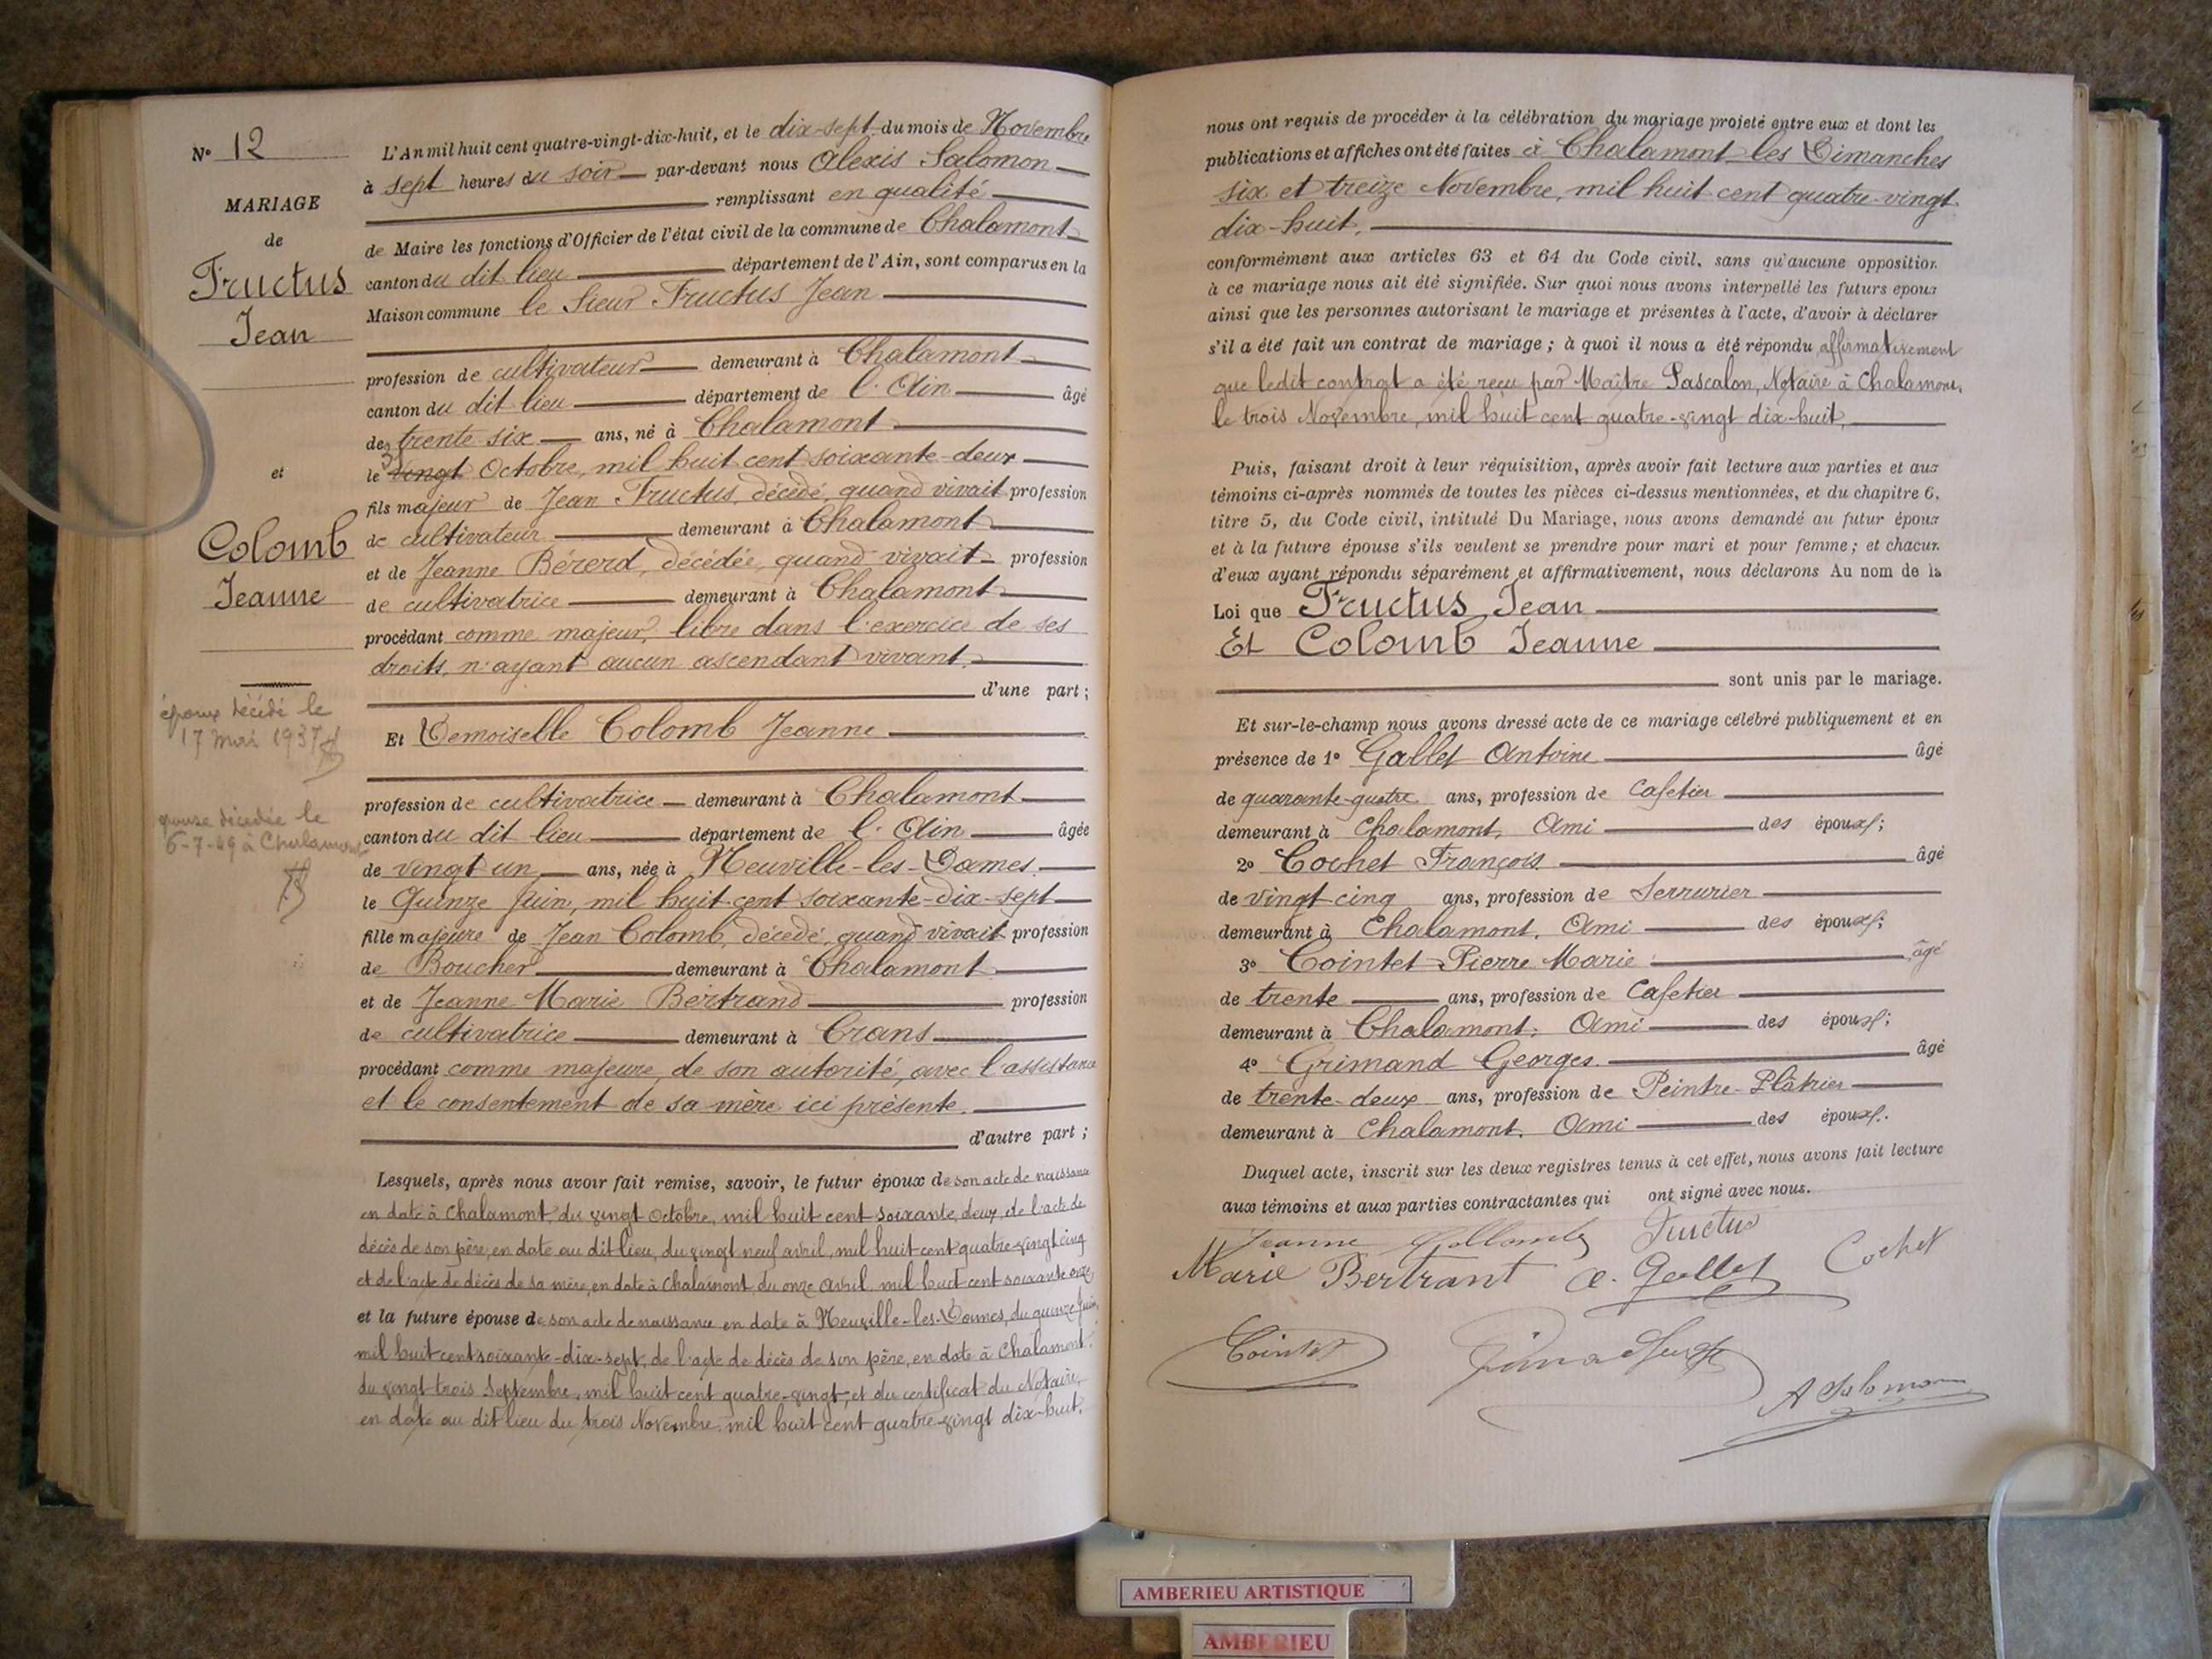 N° 12
MARIAGE
de
Fructus
Jean
et
Colomb
Jeanne
époux décédé le
17 mai 1937
épouse décédée le
6-7-49 à Chalamont
L'An mil huit cent quatre-vingt-dix-huit, et le dix-sept du mois de Novembre
à sept heures du soir par-devant nous Alexis Salomon
remplissant en qualité
de Maire les fonctions d'Officier de l'état civil de la commune de Chalamont
canton du dit lieu département de l'Ain, sont comparus en la
Maison commune le Sieur Fructus Jean
profession de cultivateur demeurant à Chalamont
canton du dit lieu département de l'Ain âgé
de trente six ans, né à Chalamont
le vingt Octobre, mil huit cent soixante-deux
fils majeur de Jean Fructus, décédé, quand vivait profession
de cultivateur demeurant à Chalamont
et de Jeanne Bérerd, décédée, quand vivait profession
de cultivatrice demeurant à Chalamont
procédant comme majeur, libre dans l'exercice de ses
droits, n'ayant aucun ascendant vivant.
d'une part ;
Et Demoiselle Colomb Jeanne
profession de cultivatrice demeurant à Chalamont
canton du dit lieu département de l'Ain âgée
de vingt un ans, née à Neuville-les-Dames
le Quinze Juin, mil huit-cent soixante-dix-sept
fille majeure de Jean Colomb, décédé, quand vivait profession
de Boucher demeurant à Chalamont
et de Jeanne Marie Bertrand profession
de cultivatrice demeurant à Crans
procédant comme majeure, de son autorité, avec l'assistance
et le consentement de sa mère ici présente.
d'autre part ;
Lesquels, après nous avoir fait remise, savoir, le futur époux de son acte de naissance
en date à Chalamont, du vingt Octobre, mil huit cent soixante, deux, de l'acte de
décès de son père, en date au dit lieu, du vingt neuf avril, mil huit cent quatre-vingt cinq
et de l'acte de décès de sa mère, en date à Chalamont du onze avril, mil huit cent soixante onze,
et la future épouse de son acte de naissance en date à Neuville-les-Dames, du quinze Juin,
mil huit cent soixante-dix-sept, de l'acte de décès de son père, en date à Chalamont,
du vingt trois Septembre, mil huit cent quatre-vingt, et du certificat du Notaire,
en date au dit lieu du trois Novembre, mil huit cent quatre-vingt dix-huit,
nous ont requis de procéder à la célébration du mariage projeté entre eux et dont les
publications et affiches ont été faites à Chalamont les Dimanches
six et treize Novembre, mil huit cent quatre-vingt
dix-huit,
conformément aux articles 63 et 64 du Code civil, sans qu'aucune opposition
à ce mariage nous ait été signifiée. Sur quoi nous avons interpellé les futurs époux
ainsi que les personnes autorisant le mariage et présentes à l'acte, d'avoir à déclarer
s'il a été fait un contrat de mariage ; à quoi il nous a été répondu affirmativement
que ledit contrat a été reçu par Maître Pascalon, Notaire à Chalamont,
le trois Novembre, mil huit cent quatre-vingt dix-huit,
Puis, faisant droit à leur réquisition, après avoir fait lecture aux parties et aux
témoins ci-après nommés de toutes les pièces ci-dessus mentionnées, et du chapitre 6,
titre 5, du Code civil, intitulé Du Mariage, nous avons demandé au futur époux
et à la future épouse s'ils veulent se prendre pour mari et pour femme ; et chacun
d'eux ayant répondu séparément et affirmativement, nous déclarons Au nom de la
Loi que Fructus Jean
Et Colomb Jeanne
sont unis par le mariage.
Et sur-le-champ nous avons dressé acte de ce mariage célébré publiquement et en
présence de 1° Gallet Antoine âgé
de quarante-quatre ans, profession de Cafetier
demeurant à Chalamont, Ami des époux ;
2° Cochet François âgé
de vingt-cinq ans, profession de Serrurier
demeurant à Chalamont. Ami des époux ;
3° Cointet Pierre Marie âgé
de trente ans, profession de Cafetier
demeurant à Chalamont; Ami des époux ;
4° Grimand Georges âgé
de trente-deux ans, profession de Peintre-Plâtrier
demeurant à Chalamont. Ami des époux.
Duquel acte, inscrit sur les deux registres tenus à cet effet, nous avons fait lecture
aux témoins et aux parties contractantes qui ont signé avec nous.
Jeanne Collomb Fructus
Marie Bertrant A. Gallet Cochet
Cointet
A Salomon
AMBERIEU ARTISTIQUE
AMBERIEU